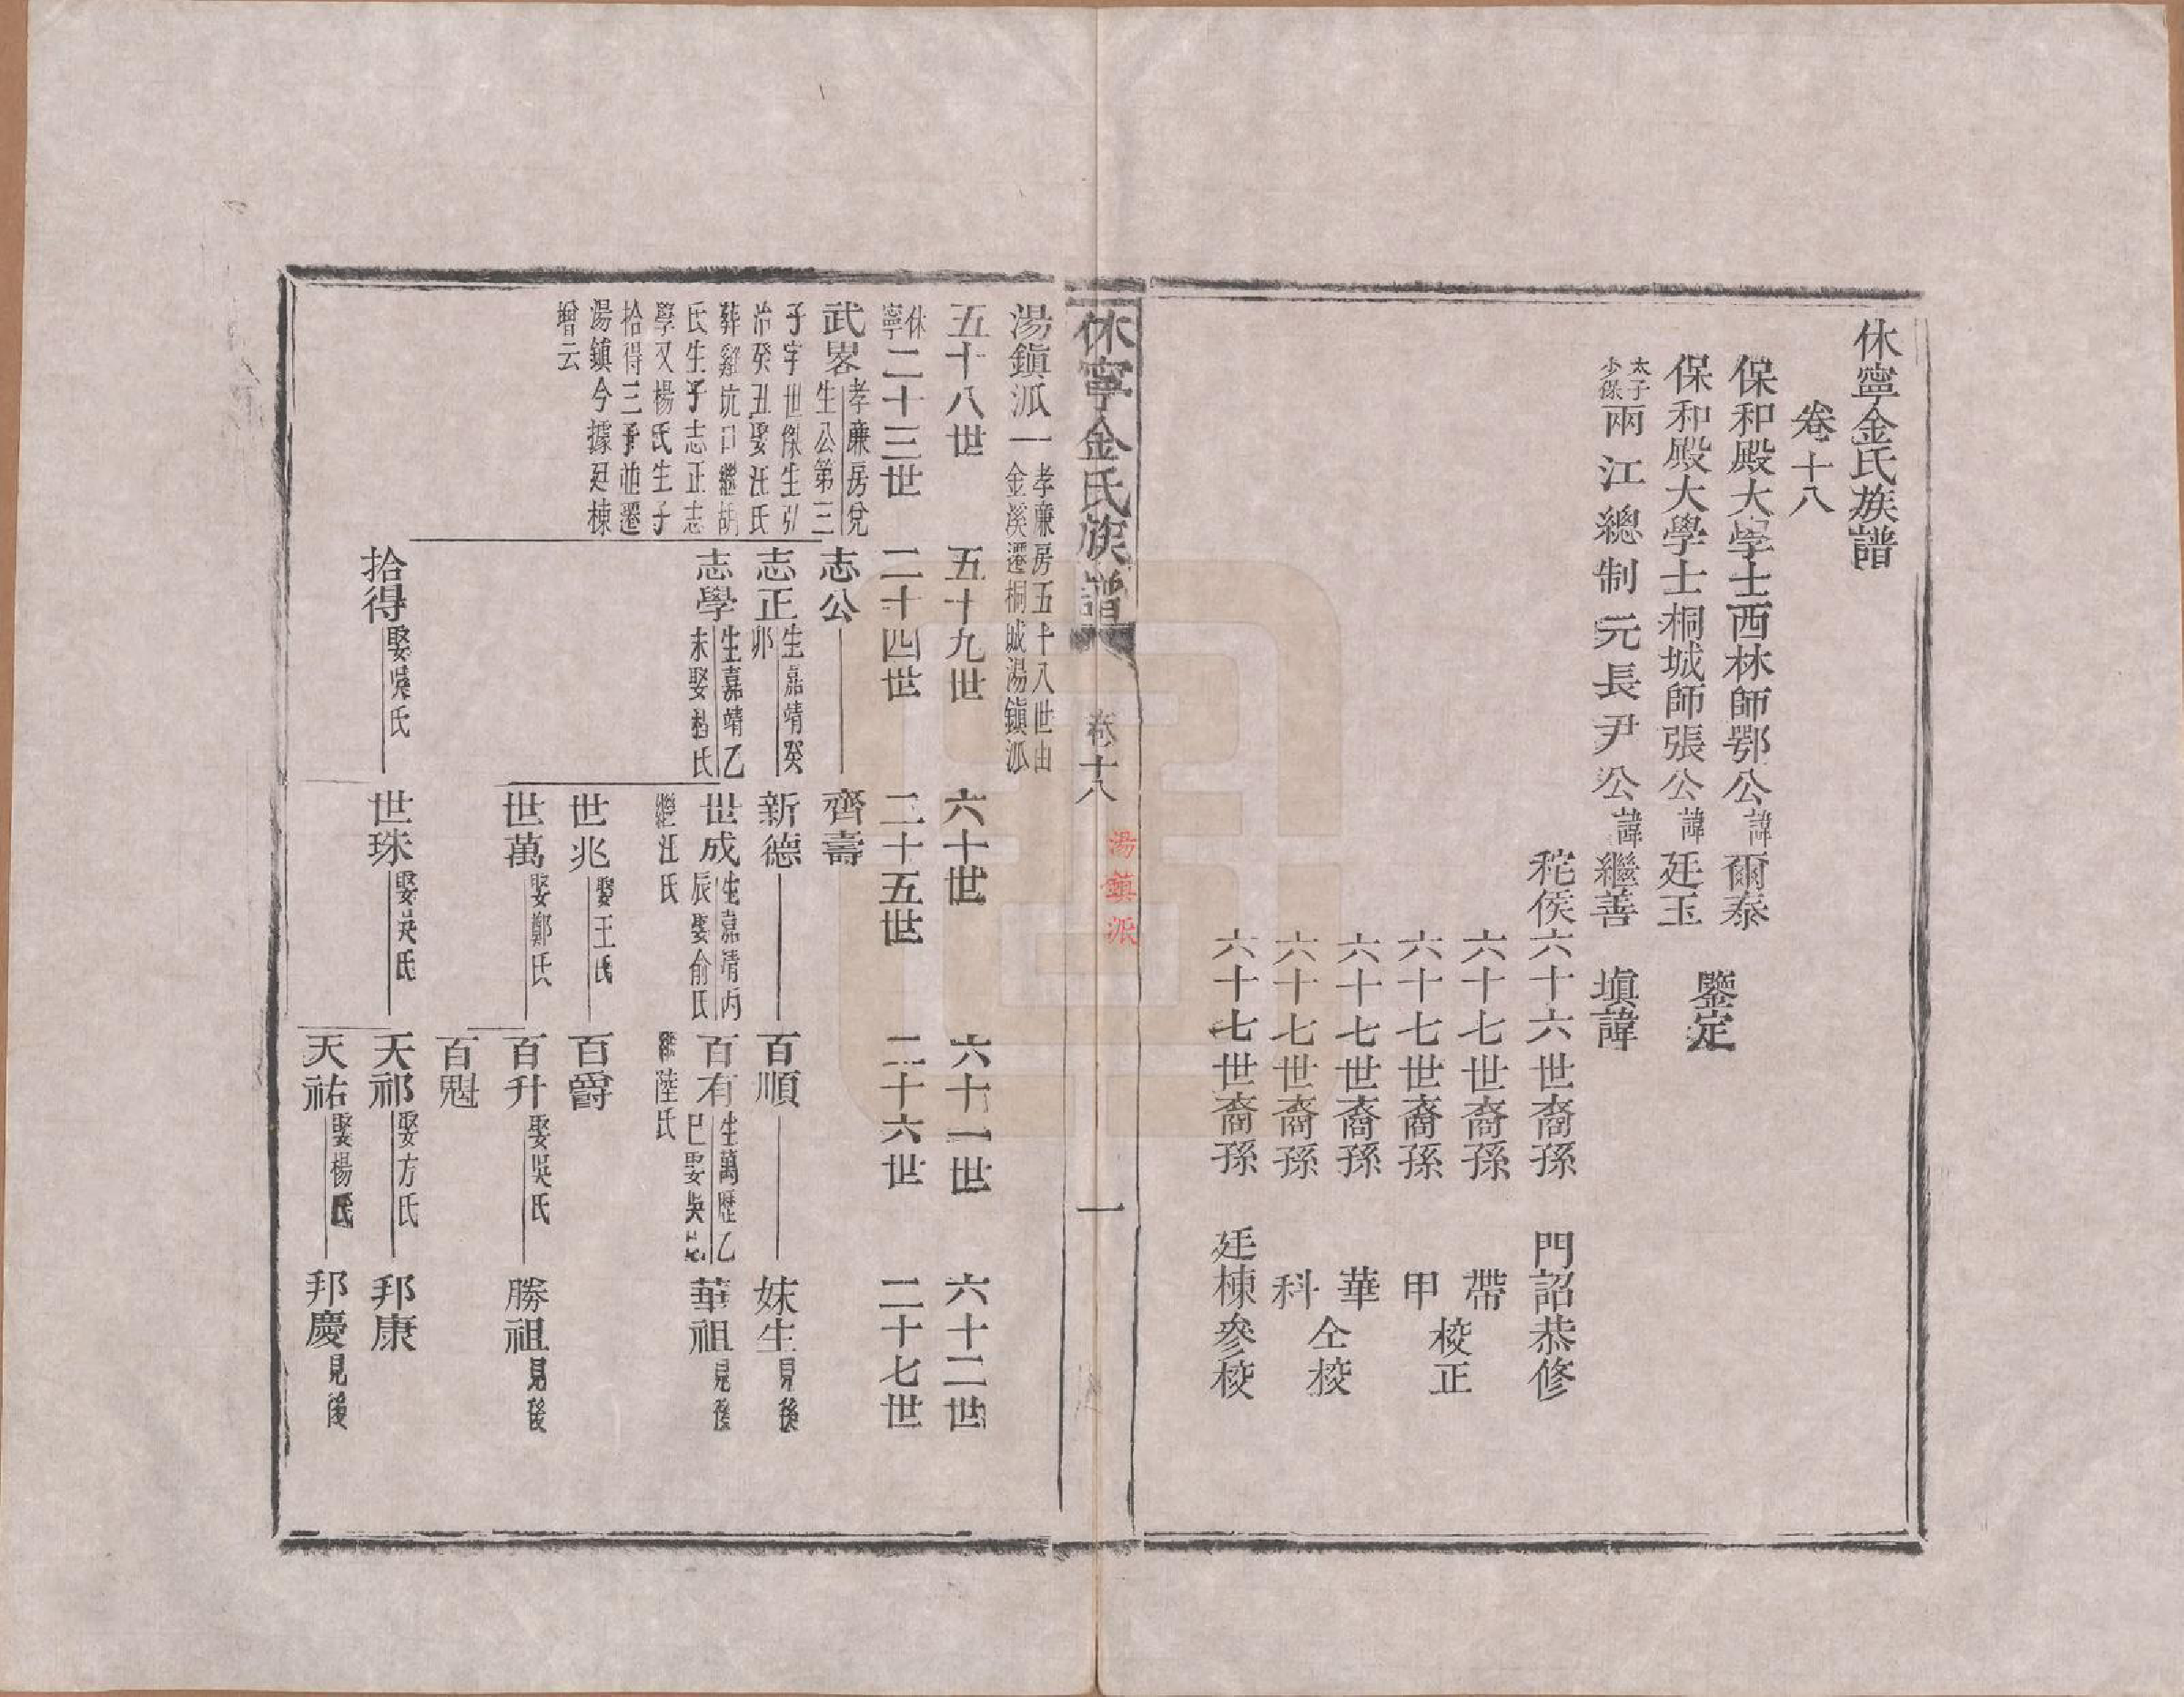 休寧金氏族譜
卷十八
保和殿大學士西林師鄂公諱爾泰
保和殿大學士桐城師張公諱廷玉
鑒定
太子少保兩江總制元長尹公諱繼善 塡諱
秺侯六十六世裔孫 門詔恭修
六十七世裔孫 帶
六十七世裔孫 甲
校正
六十七世裔孫 華
六十七世裔孫 科
仝校
六十七世裔孫 廷棟參校
休寧金氏族譜 卷十八 一
湯鎮派
湯鎮派一 孝廉房五十八世由金溪遷桐城湯鎮派
五十八世 五十九世 六十世 六十一世 六十二世
休寧二十三世 二十四世 二十五世 二十六世 二十七世
武畧 孝廉房兌生公第三
子字世傑生弘
治癸丑娶汪氏
葬鷄坑口繼胡
氏生子志正志
學又楊氏生子
拾得三子並遷
湯鎮今據廷棟
增云
志公 齊壽
志正 生嘉靖癸卯 新德 百順 妹生 見後
志學 生嘉靖乙未娶楊氏 世成 生嘉靖丙辰娶俞氏繼汪氏 百有 生萬歷乙巳娶吳氏繼陸氏 華祖 見後
世兆 娶王氏 百爵
世萬 娶鄭氏 百升 娶吳氏 勝祖 見後
百魁
拾得 娶吳氏 世珠 娶吳氏 天祁 娶方氏 邦康
天祐 娶楊氏 邦慶 見後